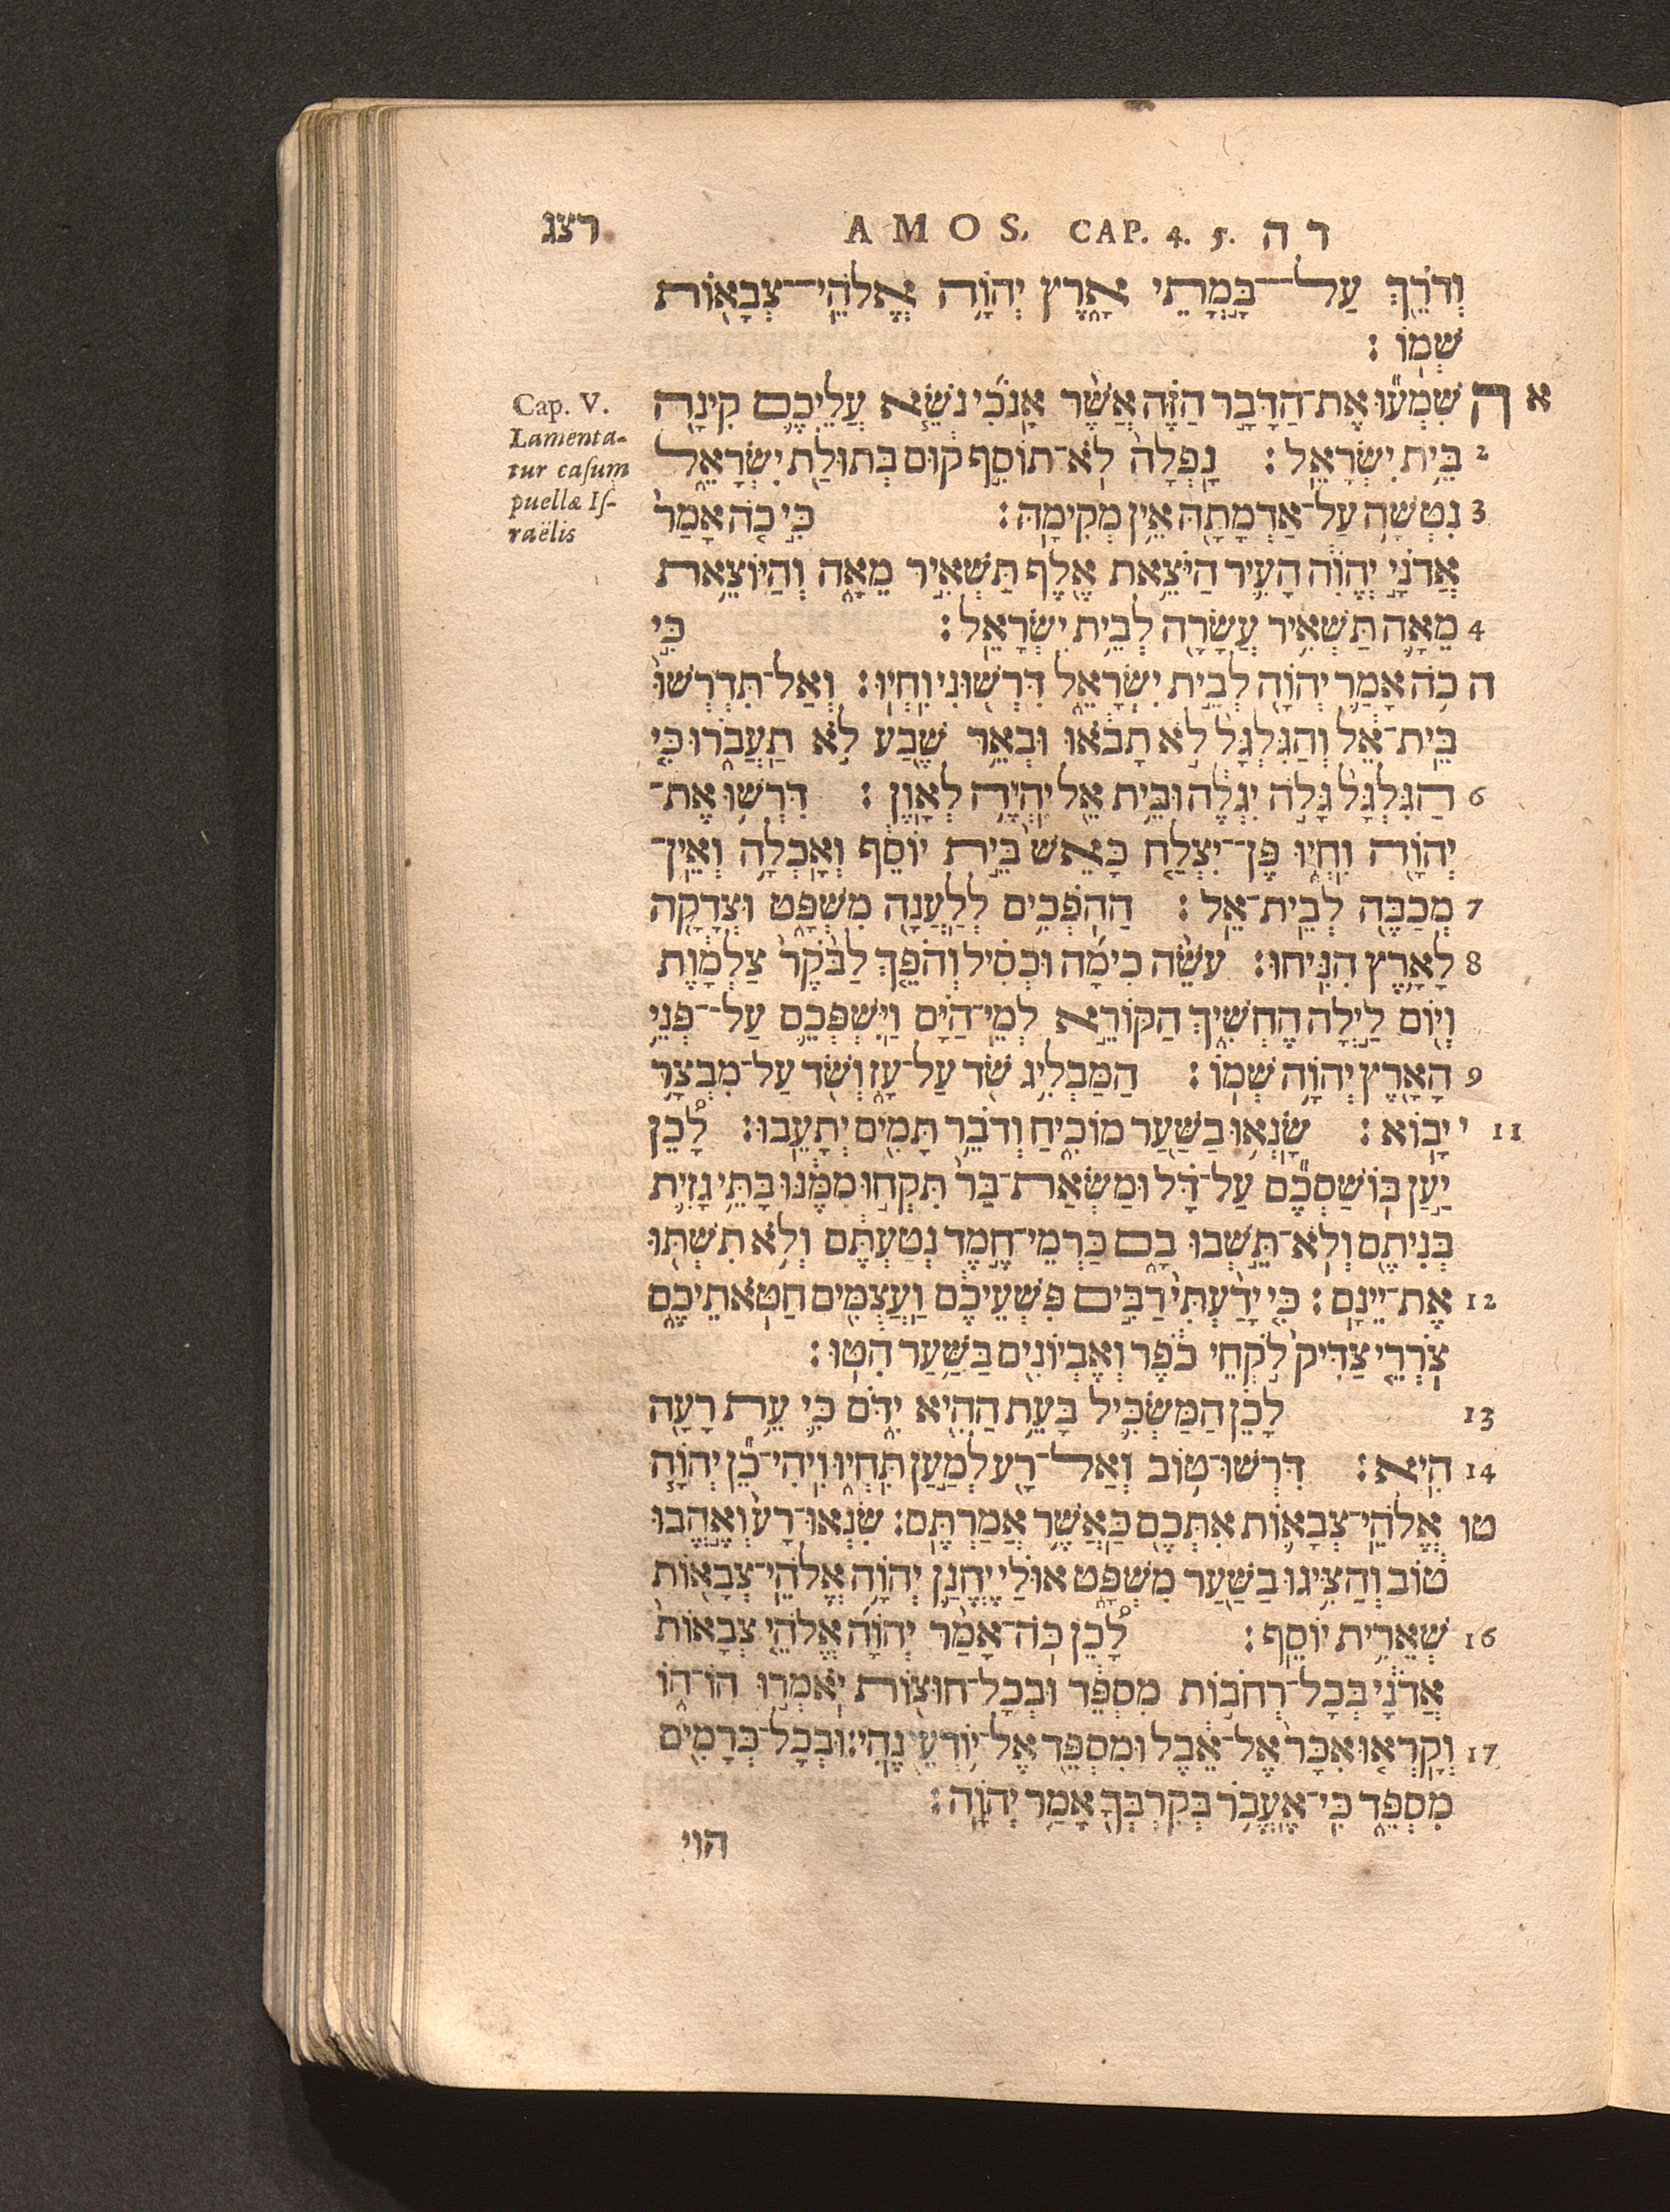 רצג AMOS. CAP. 4. 5. ד ה
וְדֹרֵ֖ךְ עַל־בָּ֣מֳתֵי אָ֑רֶץ יְהוָ֥ה אֱלֹהֵֽי־צְבָא֖וֹת
שְׁמֽוֹ׃
א ה שִׁמְע֞וּ אֶת־הַדָּבָ֣ר הַזֶּ֗ה אֲשֶׁ֨ר אָֽנֹכִ֜י נֹשֵׂ֧א עֲלֵיכֶ֛ם קִינָ֖ה
Cap. V.
Lamenta-
tur casum
puellæ Iſ-
raëlis
2 בֵּ֥ית יִשְׂרָאֵֽל׃ נָֽפְלָה֙ לֹֽא־תוֹסִ֣יף ק֔וּם בְּתוּלַ֖ת יִשְׂרָאֵ֑ל
3 נִטְּשָׁ֥ה עַל־אַדְמָתָ֖הּ אֵ֥ין מְקִימָֽהּ׃ כִּ֣י כֹ֤ה אָמַר֙
אֲדֹנָ֣י יְהוִ֔ה הָעִ֛יר הַיֹּצֵ֥את אֶ֖לֶף תַּשְׁאִ֣יר מֵאָ֑ה וְהַיּוֹצֵ֥את
4 מֵאָ֛ה תַּשְׁאִ֥יר עֲשָׂרָ֖ה לְבֵ֥ית יִשְׂרָאֵֽל׃ כִּ֣י
ה כֹ֥ה אָמַ֛ר יְהוָ֖ה לְבֵ֣ית יִשְׂרָאֵ֑ל דִּרְשׁ֖וּנִי וִֽחְיֽוּ׃ וְאַֽל־תִּדְרְשׁוּ֙
בֵּֽית־אֵ֔ל וְהַגִּלְגָּל֙ לֹ֣א תָבֹ֔אוּ וּבְאֵ֥ר שֶׁ֖בַע לֹ֣א תַעֲבֹ֑רוּ כִּ֤י
6 הַגִּלְגָּל֙ גָּלֹ֣ה יִגְלֶ֔ה וּבֵֽית אֵ֖ל יִהְיֶ֥ה לְאָֽוֶן׃ דִּרְשׁ֥וּ אֶת־
יְהוָ֖ה וִֽחְי֑וּ פֶּן־יִצְלַ֤ח כָּאֵשׁ֙ בֵּ֣ית יוֹסֵ֔ף וְאָכְלָ֥ה וְאֵין־
7 מְכַבֶּ֖ה לְבֵֽית־אֵֽל׃ הַהֹפְכִ֥ים לְלַעֲנָ֖ה מִשְׁפָּ֑ט וּצְדָקָ֖ה
8 לָאָ֥רֶץ הִנִּֽיחוּ׃ עֹשֵׂ֨ה כִימָ֜ה וּכְסִ֗יל וְהֹפֵ֤ךְ לַבֹּ֙קֶר֙ צַלְמָ֔וֶת
וְי֖וֹם לַ֣יְלָה הֶחְשִׁ֑יךְ הַקּוֹרֵ֣א לְמֵֽי־הַיָּ֗ם וַֽיִּשְׁפְּכֵ֛ם עַל־פְּנֵ֥י
9 הָאָ֖רֶץ יְהוָ֥ה שְׁמֽוֹ׃ הַמַּבְלִ֥יג שֹׁ֖ד עַל־עָ֑ז וְשֹׁ֖ד עַל־מִבְצָ֥ר
11 י יָבֽוֹא׃ שָׂנְא֥וּ בַשַּׁ֖עַר מוֹכִ֑יחַ וְדֹבֵ֥ר תָּמִ֖ים יְתָעֵֽבוּ׃ לָ֠כֵן
יַ֣עַן בּוֹשַׁסְכֶ֞ם עַל־דָּ֗ל וּמַשְׂאַת־בַּר֙ תִּקְח֣וּ מִמֶּ֔נּוּ בָּתֵּ֥י גָזִ֛ית
בְּנִיתֶ֖ם וְלֹא־תֵ֣שְׁבוּ בָ֑ם כַּרְמֵי־חֶ֣מֶד נְטַעְתֶּ֔ם וְלֹ֥א תִשְׁתּ֖וּ
12 אֶת־יֵינָֽם׃ כִּ֤י יָדַ֙עְתִּי֙ רַבִּ֣ים פִּשְׁעֵיכֶ֔ם וַעֲצֻמִ֖ים חַטֹּֽאתֵיכֶ֑ם
צֹרְרֵ֤י צַדִּיק֙ לֹ֣קְחֵי כֹ֔פֶר וְאֶבְיוֹנִ֖ים בַּשַּׁ֥עַר הִטּֽוּ׃
13 לָכֵ֗ן הַמַּשְׂכִּ֛יל בָּעֵ֥ת הַהִ֖יא יִדֹּ֑ם כִּ֛י עֵ֥ת רָעָ֖ה
14 הִֽיא׃ דִּרְשׁוּ־ט֥וֹב וְאַל־רָ֖ע לְמַ֣עַן תִּֽחְי֑וּ וִיהִי־כֵ֞ן יְהוָ֧ה
טו אֱלֹהֵֽי־צְבָא֛וֹת אִתְּכֶ֖ם כַּאֲשֶׁ֥ר אֲמַרְתֶּֽם׃ שִׂנְאוּ־רָע֙ וְאֶ֣הֱבוּ
ט֔וֹב וְהַצִּ֥יגוּ בַשַּׁ֖עַר מִשְׁפָּ֑ט אוּלַ֗י יֶֽחֱנַ֛ן יְהוָ֥ה אֱלֹהֵֽי־צְבָא֖וֹת
16 שְׁאֵרִ֥ית יוֹסֵֽף׃ לָ֠כֵן כֹּֽה־אָמַ֨ר יְהוָ֜ה אֱלֹהֵ֤י צְבָאוֹת֙
אֲדֹנָ֔י בְּכָל־רְחֹב֣וֹת מִסְפֵּ֔ד וּבְכָל־חוּצ֖וֹת יֹאמְר֣וּ הוֹ־ה֑וֹ
17 וְקָרְא֤וּ אִכָּר֙ אֶל־אֵ֔בֶל וּמִסְפֵּ֖ד אֶל־י֥וֹדְעֵי נֶֽהִי׃ וּבְכָל־כְּרָמִ֖ים
מִסְפֵּ֑ד כִּֽי־אֶעֱבֹ֥ר בְּקִרְבְּךָ֖ אָמַ֥ר יְהוָֽה׃
הוי